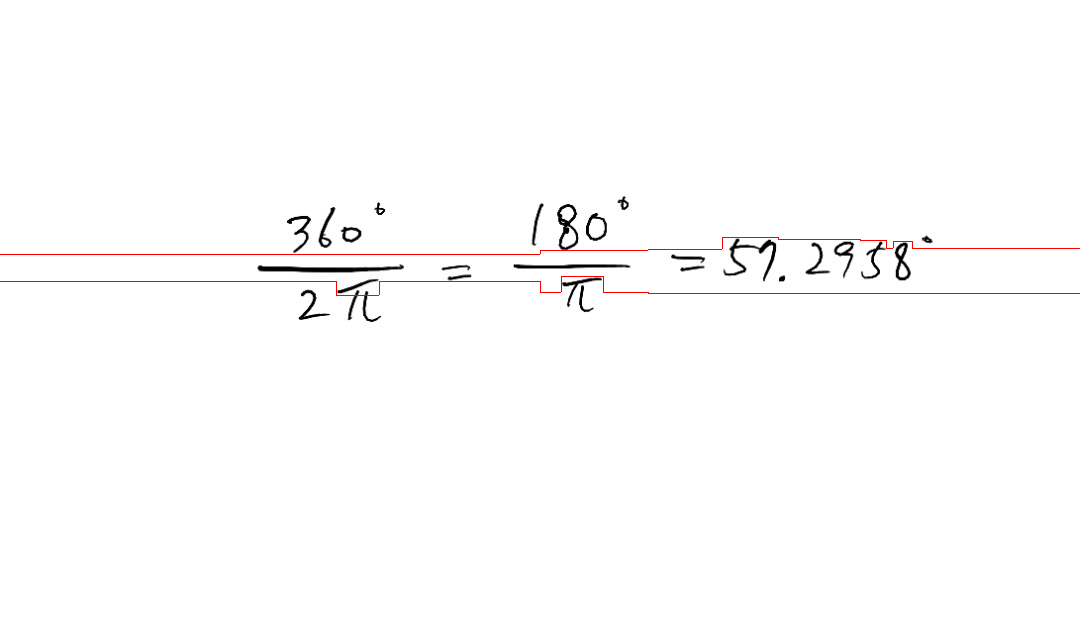 360° / 2π = 180° / π = 57.2958°